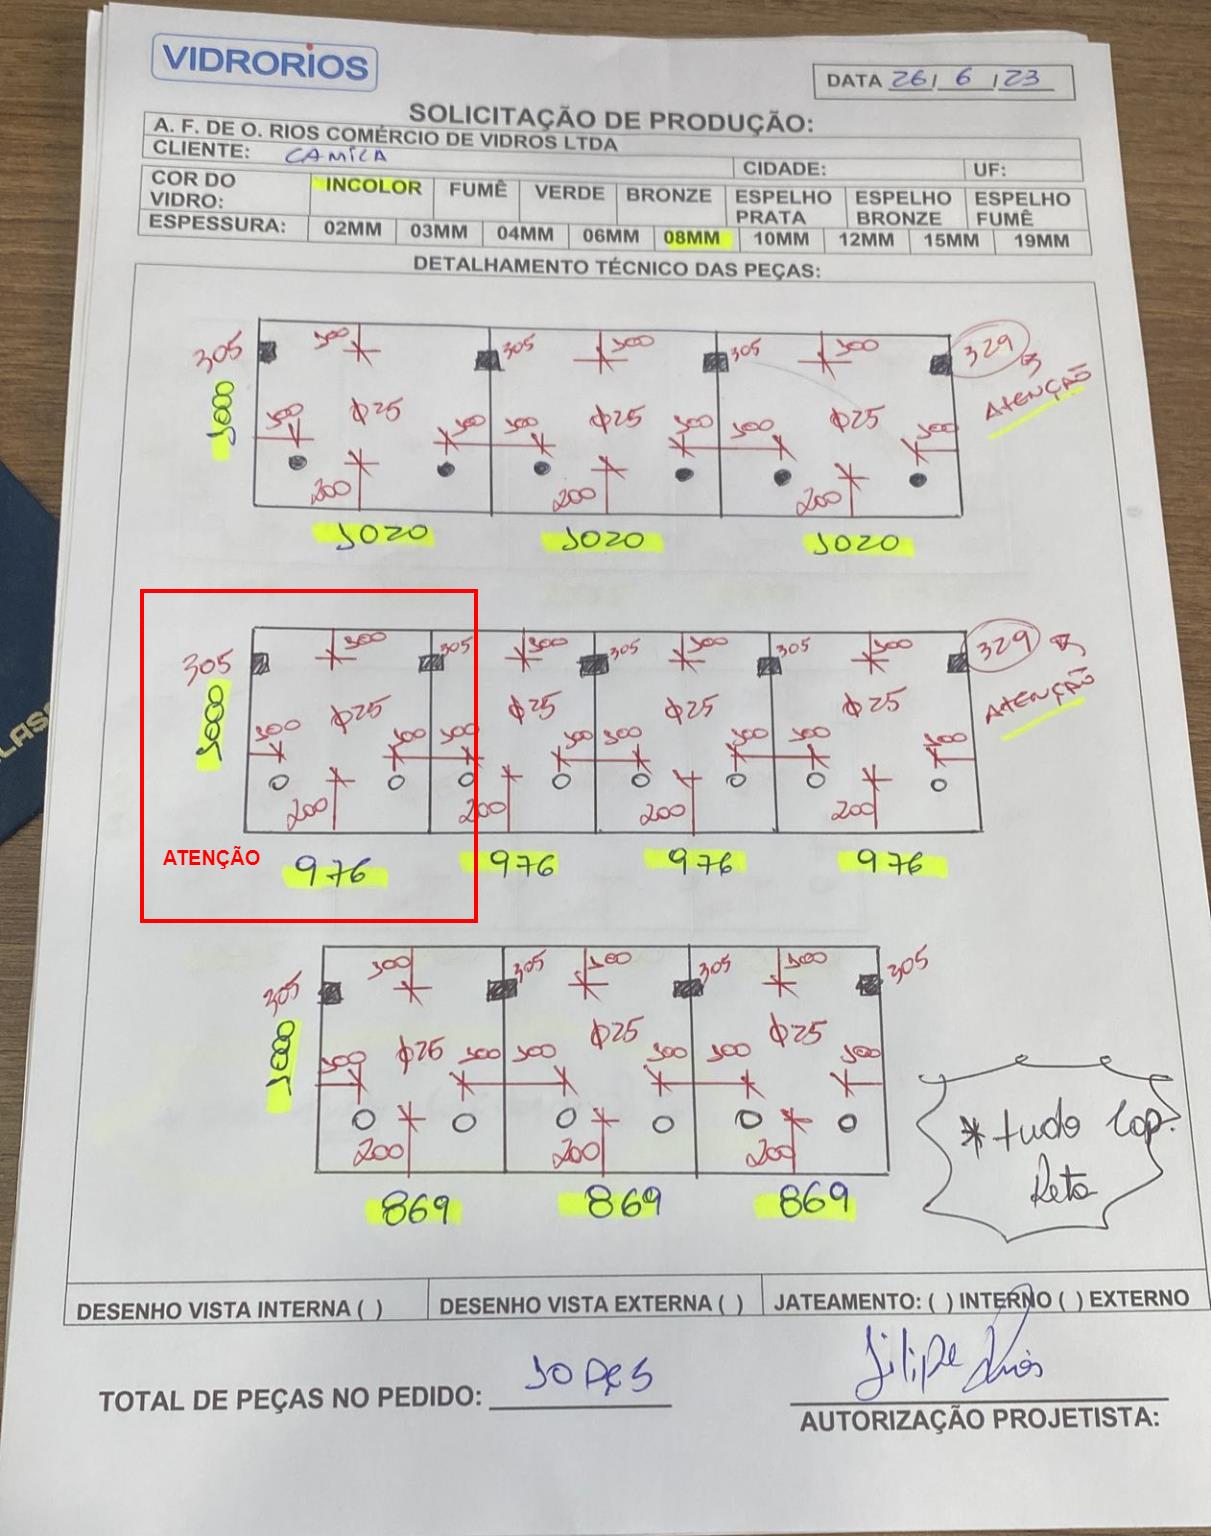 VIDRORIOS
DATA 26/ 6 /23
SOLICITAÇÃO DE PRODUÇÃO:
A. F. DE O. RIOS COMÉRCIO DE VIDROS LTDA
CLIENTE: CAMILA CIDADE: UF:
COR DO VIDRO: INCOLOR FUMÊ VERDE BRONZE ESPELHO PRATA ESPELHO BRONZE ESPELHO FUMÊ
ESPESSURA: 02MM 03MM 04MM 06MM 08MM 10MM 12MM 15MM 19MM
DETALHAMENTO TÉCNICO DAS PEÇAS:
305 100 305 100 305 100 329
ATENÇÃO
1000
100 ϕ25 100 100 ϕ25 100 100 ϕ25 100
200 200 200
1020 1020 1020
305 100 305 100 305 100 305 100 329
ATENÇÃO
1000
100 ϕ25 100 100 ϕ25 100 100 ϕ25 100 100 ϕ25 100
200 200 200 200
ATENÇÃO 976 976 976 976
305 100 305 100 305 100 305
1000
100 ϕ25 100 100 ϕ25 100 100 ϕ25 100
200 200 200
869 869 869
* tudo lap.
Reto
DESENHO VISTA INTERNA ( ) DESENHO VISTA EXTERNA ( ) JATEAMENTO: ( ) INTERNO ( ) EXTERNO
TOTAL DE PEÇAS NO PEDIDO: 10 PÇS
Filipe Rios
AUTORIZAÇÃO PROJETISTA: